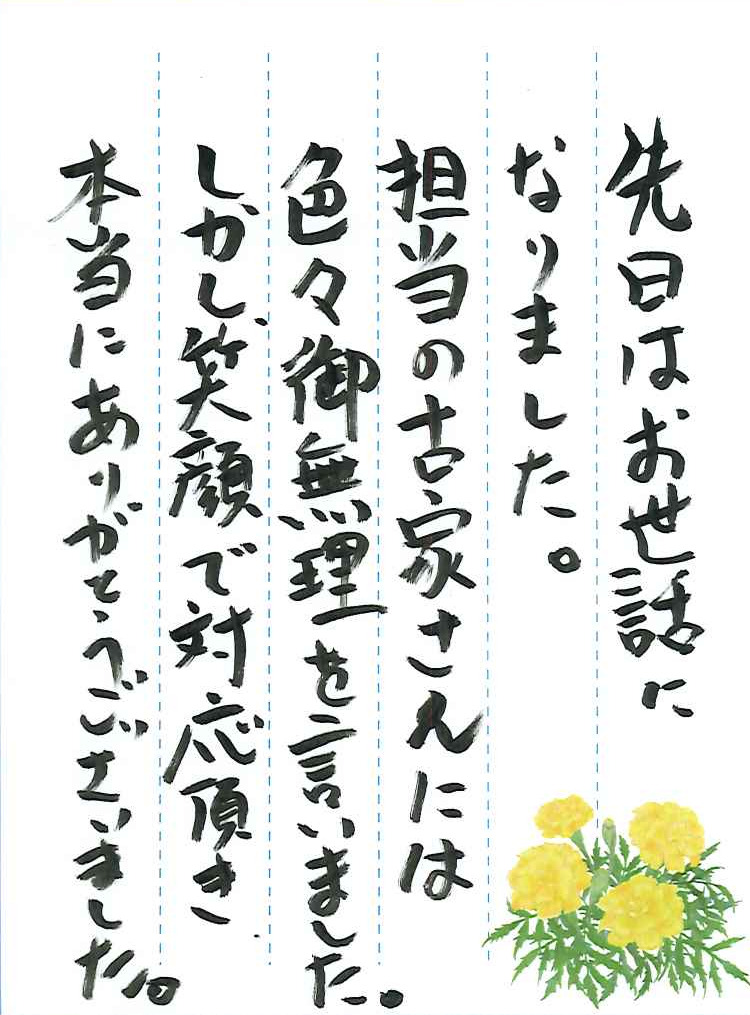 先日はお世話に
なりました。
担当の古家さんには
色々御無理を言いました。
しかし、笑顔で対応頂き
本当にありがとうございました。